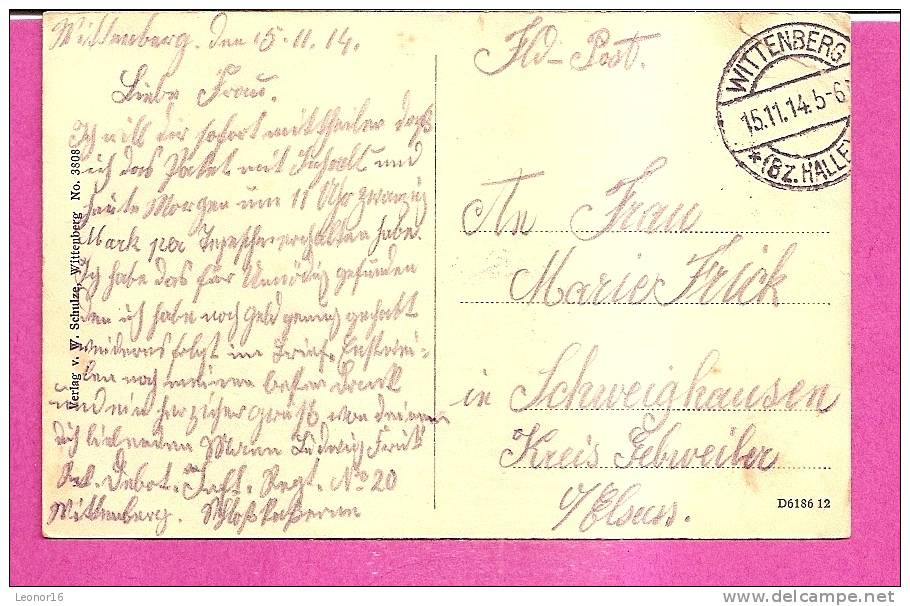 Wittenberg. den 15.11.14.
Liebe Frau.
Ich will dir sofort mittheilen daß
ich das Paket mit Inhalt und
heute Morgen um 11 Uhr zwanzig
Mark per erhalten habe.
Ich habe das für Unnödig gefunden
den ich habe noch geld genug gehabt
folgt im Brief. Einstwei-
len noch meinen besten Dank
und ein herzlicher gruß von deinem
dich liebenden Mann Ludwig Frick
Rek. Debot. Inft. Regt. No 20
Wittenberg. Schloßkaserne
Verlag v. W. Schulze, Wittenberg No. 3808
Fld-Post.
WITTENBERG
15.11.14.5-6
* (BZ. HALLE)
An Frau
Marie Frick
in Schweighausen
Kreis Gebweiler
i/Elsass.
D6186 12
Leonor16
delcampe.net